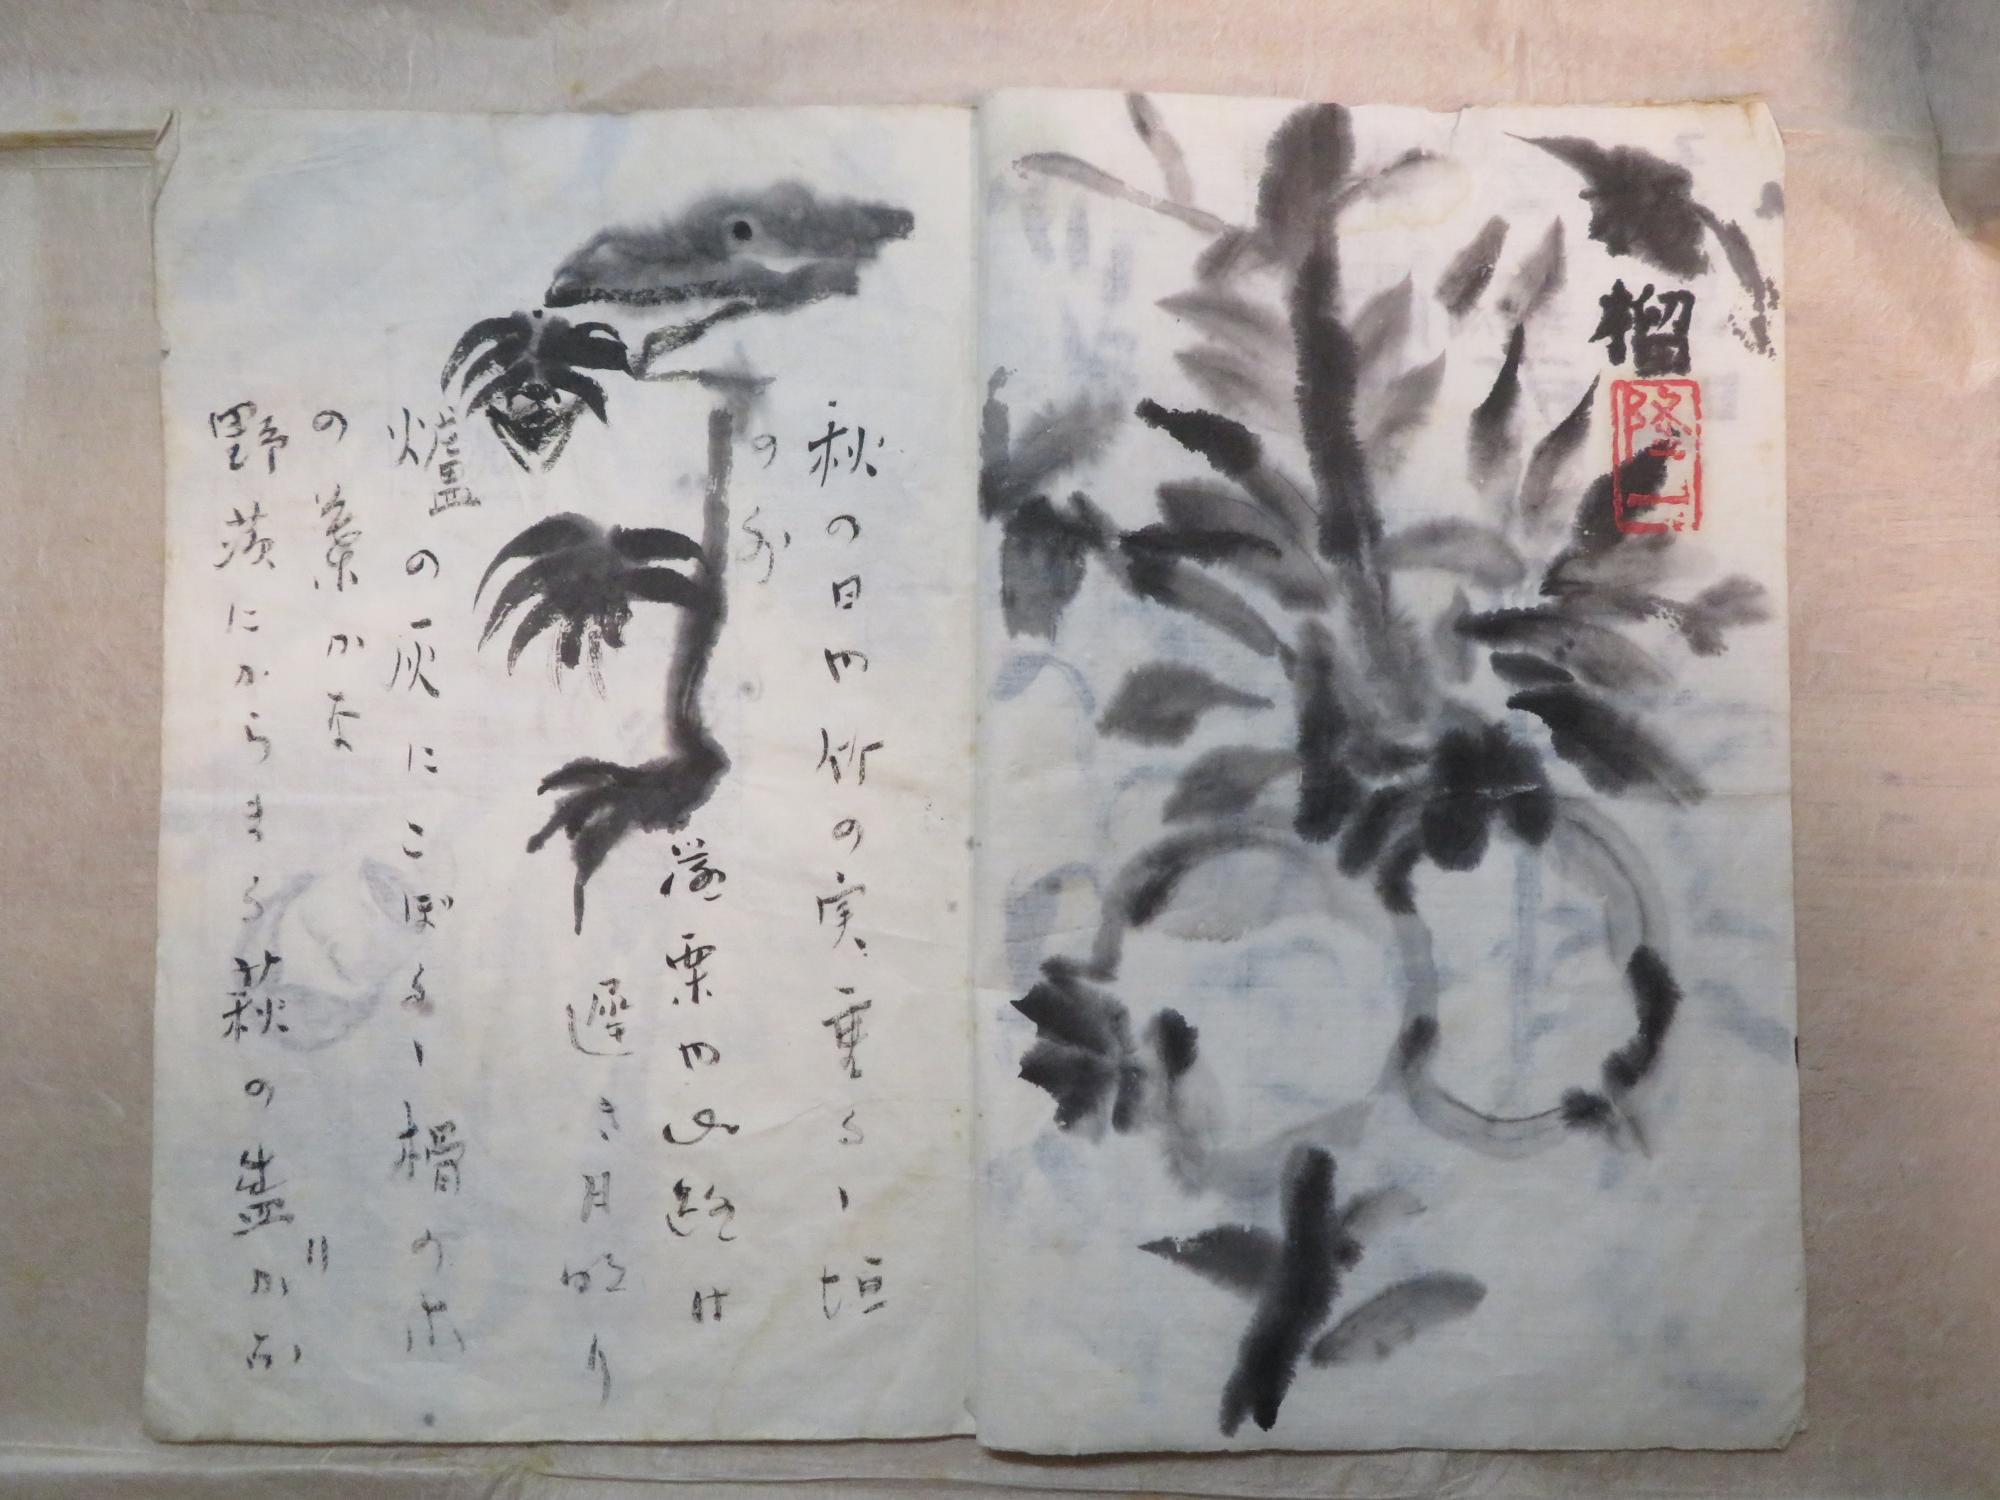 榴
隆一
秋の日や竹の実垂るゝ垣
の外
落栗や山路は
遅き月明り
爐の灰にこぼるゝ榾のホ
の葉かな
野茨にからまる萩の盛かな